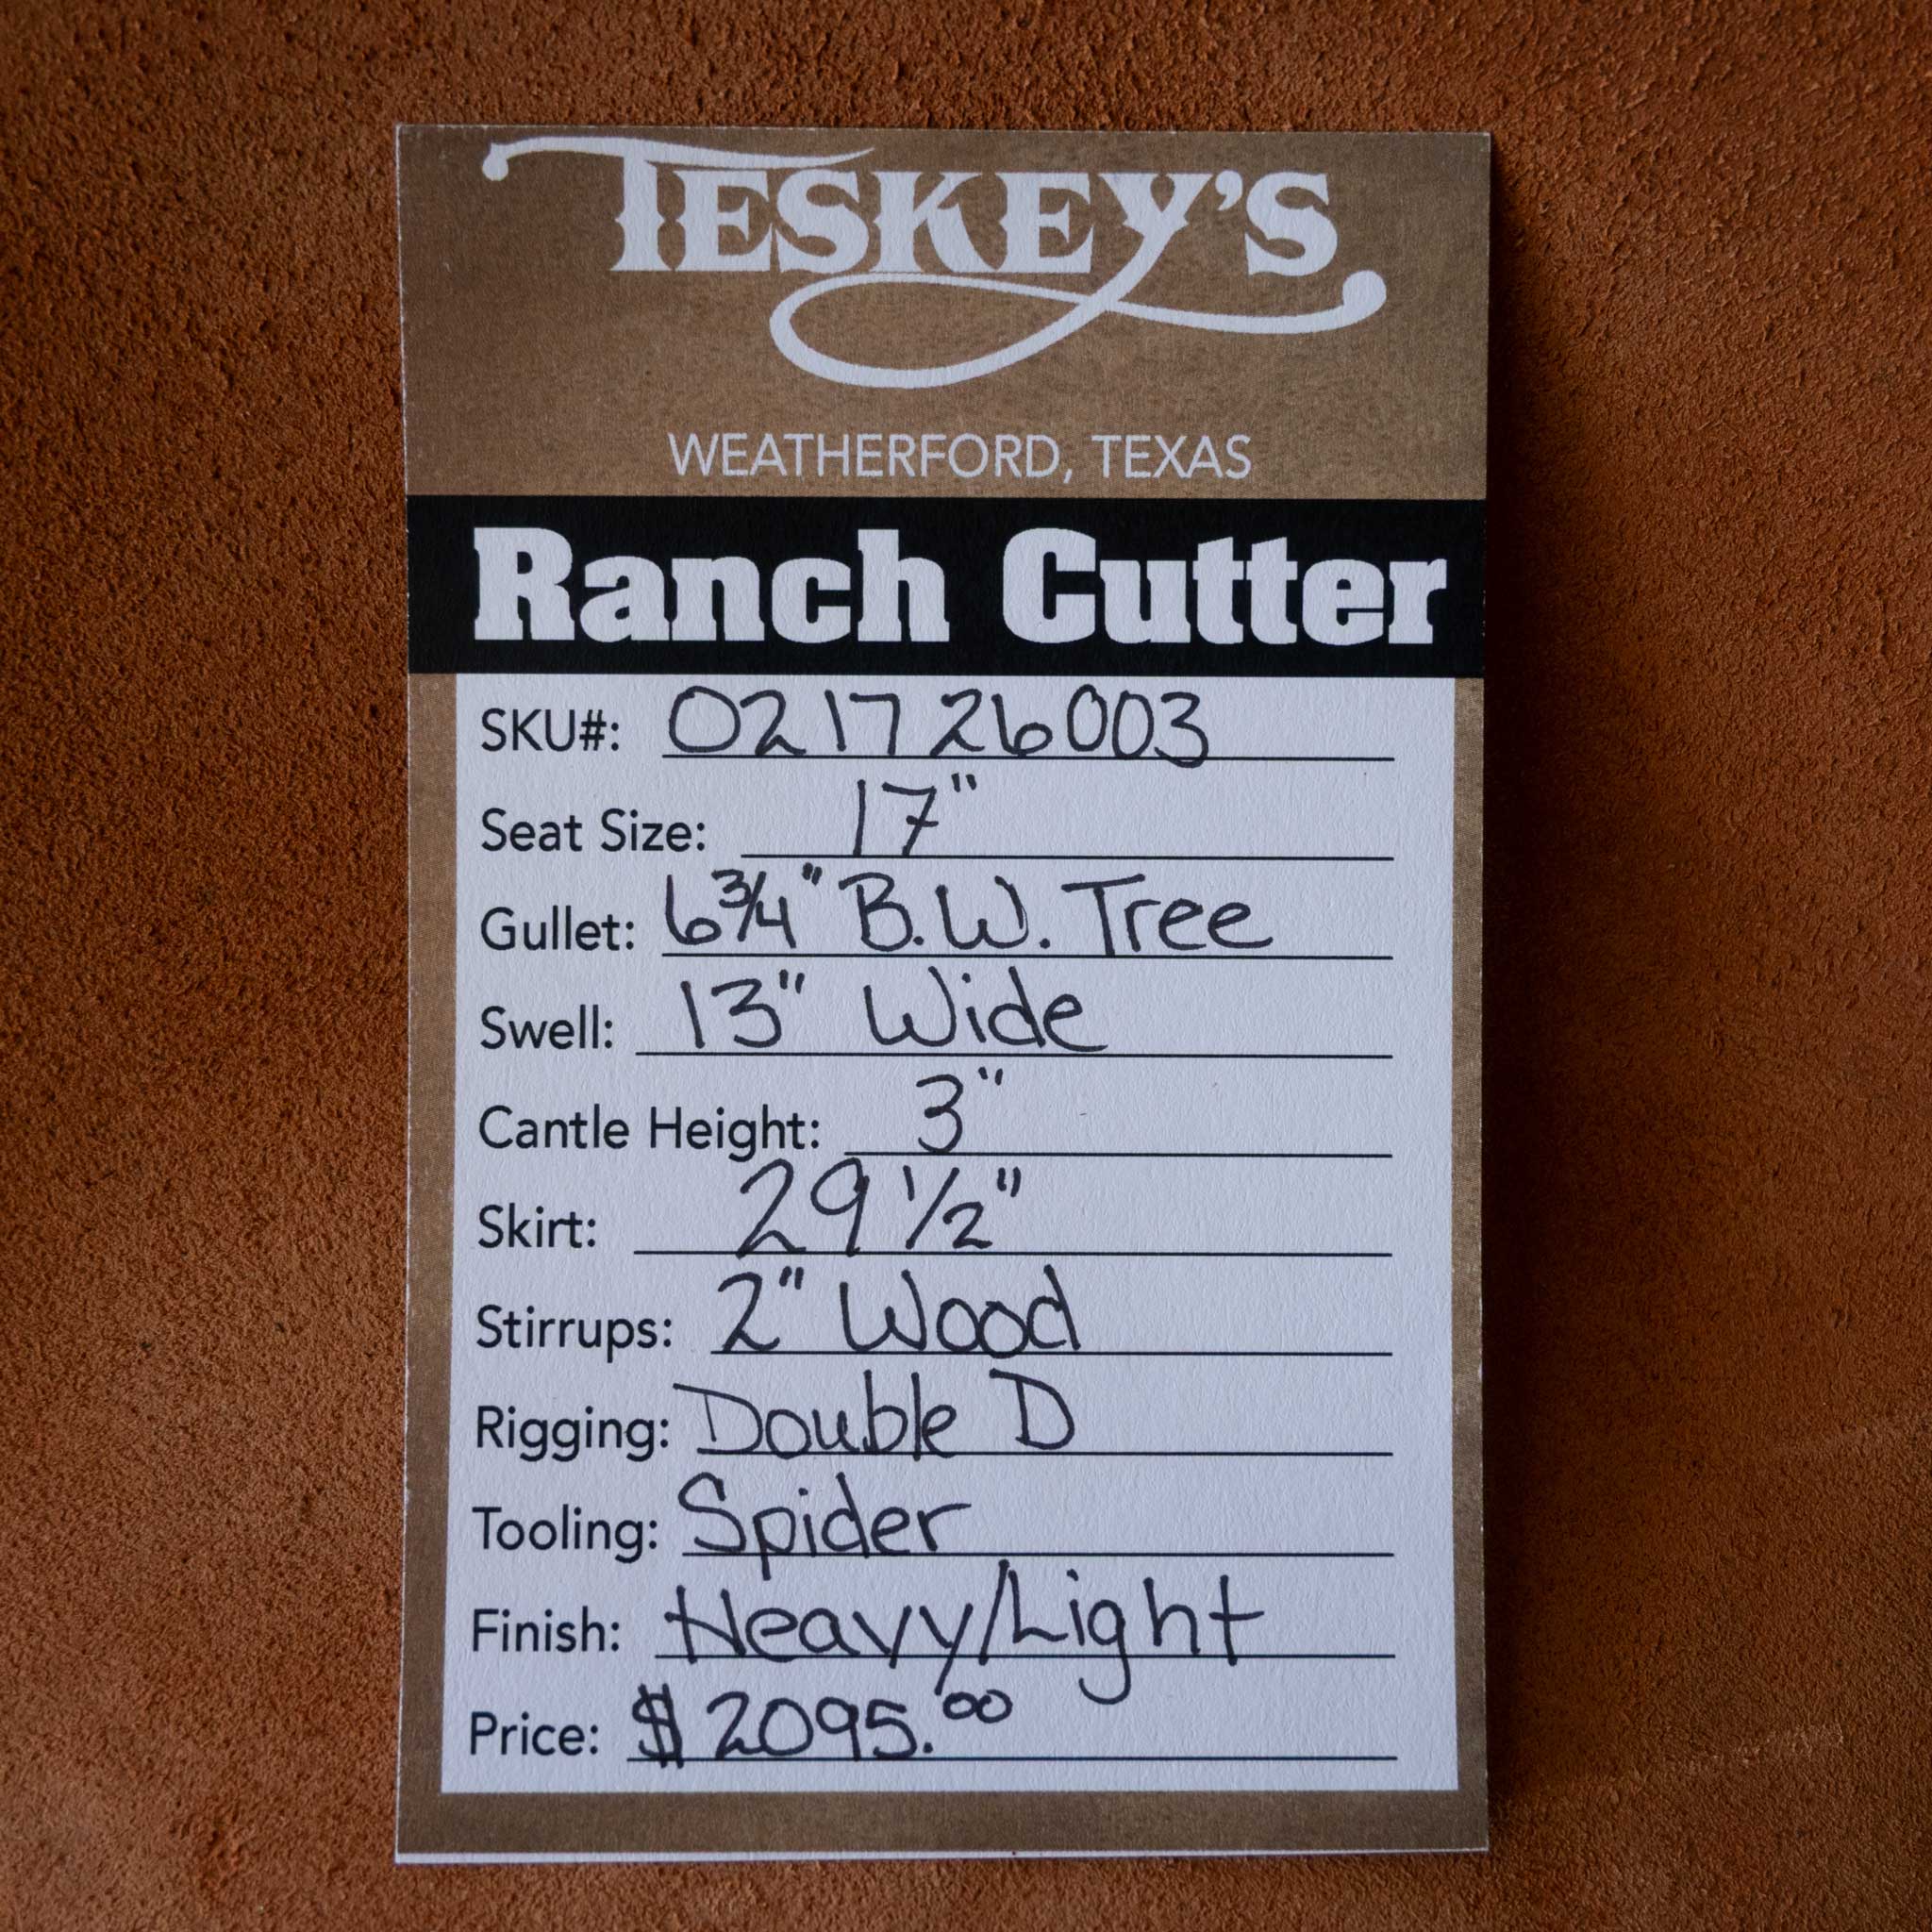 TESKEY'S
WEATHERFORD, TEXAS
Ranch Cutter
SKU#: 021726003
Seat Size: 17"
Gullet: 6 3/4" B.W. Tree
Swell: 13" Wide
Cantle Height: 3"
Skirt: 29 1/2"
Stirrups: 2" Wood
Rigging: Double D
Tooling: Spider
Finish: Heavy/Light
Price: $2095.00